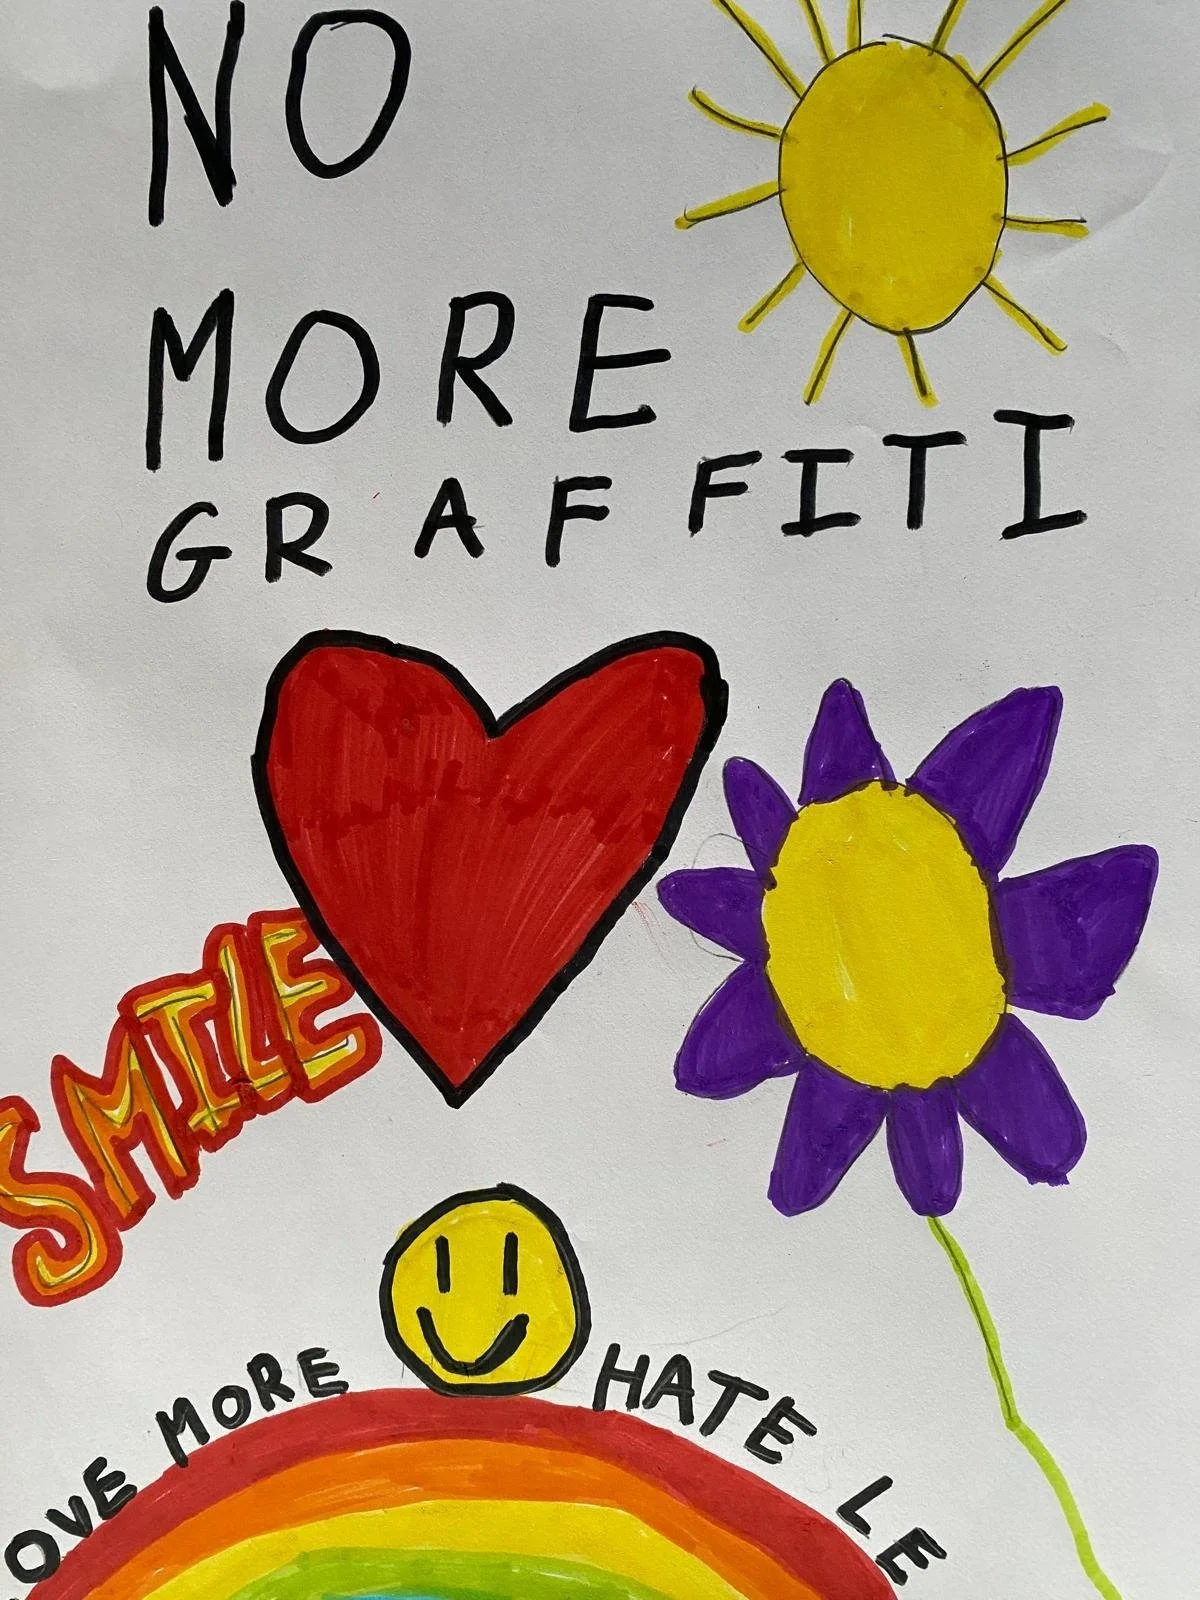 NO
MORE
GRAFFITI
SMILE
OVE MORE HATE LE